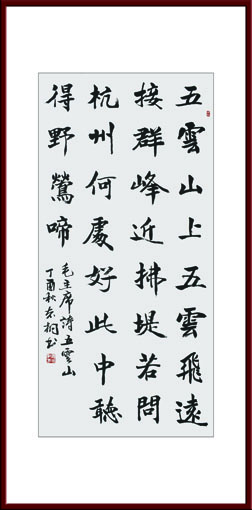 五雲山上五雲飛遠
接群峰近拂堤若問
杭州何處好此中聽
得野鶯啼
毛主席詩五雲山
丁酉秋桐书